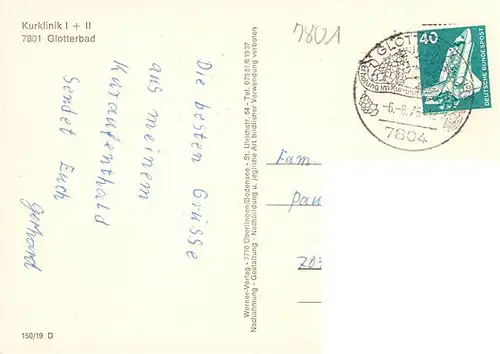 Kurklinik I + II
7801 Glotterbad
7801
Die besten Grüsse
aus meinem
Kuraufenthald
Sendet Euch
Gerhard
Werner-Verlag - 7770 Überlingen/Bodensee - St. Ulrichstr. 54 - Tel. 07551/61937
Nachahmung - Gestaltung - Nachbildung u. jegliche Art bildlicher Verwendung verboten
40
DEUTSCHE BUNDESPOST
-6.-8.76
7804
Fam.
Pau
150/19 D